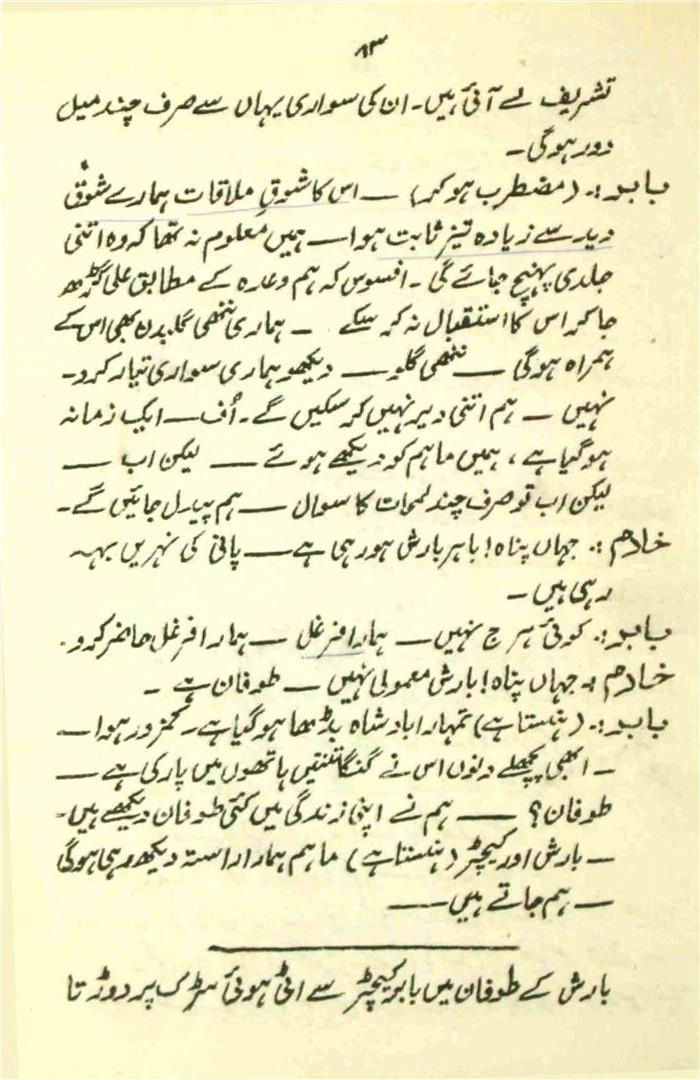 ۸۳
تشریف لے آئی ہیں۔ ان کی سواری یہاں سے صرف چند میل
دور ہوگی۔
بابر:۔ (مضطرب ہو کر) — اس کا شوقِ ملاقات ہمارے شوقِ
دید سے زیادہ تیز ثابت ہوا — ہمیں معلوم نہ تھا کہ وہ اتنی
جلدی پہنچ جائے گی۔ افسوس کہ ہم وعدہ کے مطابق علی گڑھ
جا کر اس کا استقبال نہ کر سکے — ہماری ننھی گلبدن بھی اس کے
ہمراہ ہوگی — ننھی گلو — دیکھو ہماری سواری تیار کرو۔
نہیں — ہم اتنی دیر نہیں کر سکیں گے۔ اُف — ایک زمانہ
ہو گیا ہے، ہمیں ماہم کو دیکھے ہوئے — لیکن اب —
لیکن اب تو صرف چند لمحات کا سوال — ہم پیدل جائیں گے۔
خادم:۔ جہاں پناہ! باہر بارش ہو رہی ہے — پانی کی نہریں بہہ
رہی ہیں۔
بابر:۔ کوئی ہرج نہیں — ہمارا فرغل — ہمارا فرغل حاضر کرو۔
خادم:۔ جہاں پناہ! بارش معمولی نہیں — طوفان ہے۔
بابر:۔ (ہنستا ہے) تمہارا بادشاہ بڈھا ہو گیا ہے۔ کمزور ہوا —
— ابھی پچھلے دنوں اس نے گنگا تینتیس ہاتھوں میں پار کی ہے —
طوفان؟ — ہم نے اپنی زندگی میں کئی طوفان دیکھے ہیں۔
— بارش اور کیچڑ (ہنستا ہے) ماہم ہمارا راستہ دیکھ رہی ہوگی
— ہم جاتے ہیں —
بارش کے طوفان میں بابر کیچڑ سے اٹی ہوئی سڑک پر دوڑتا